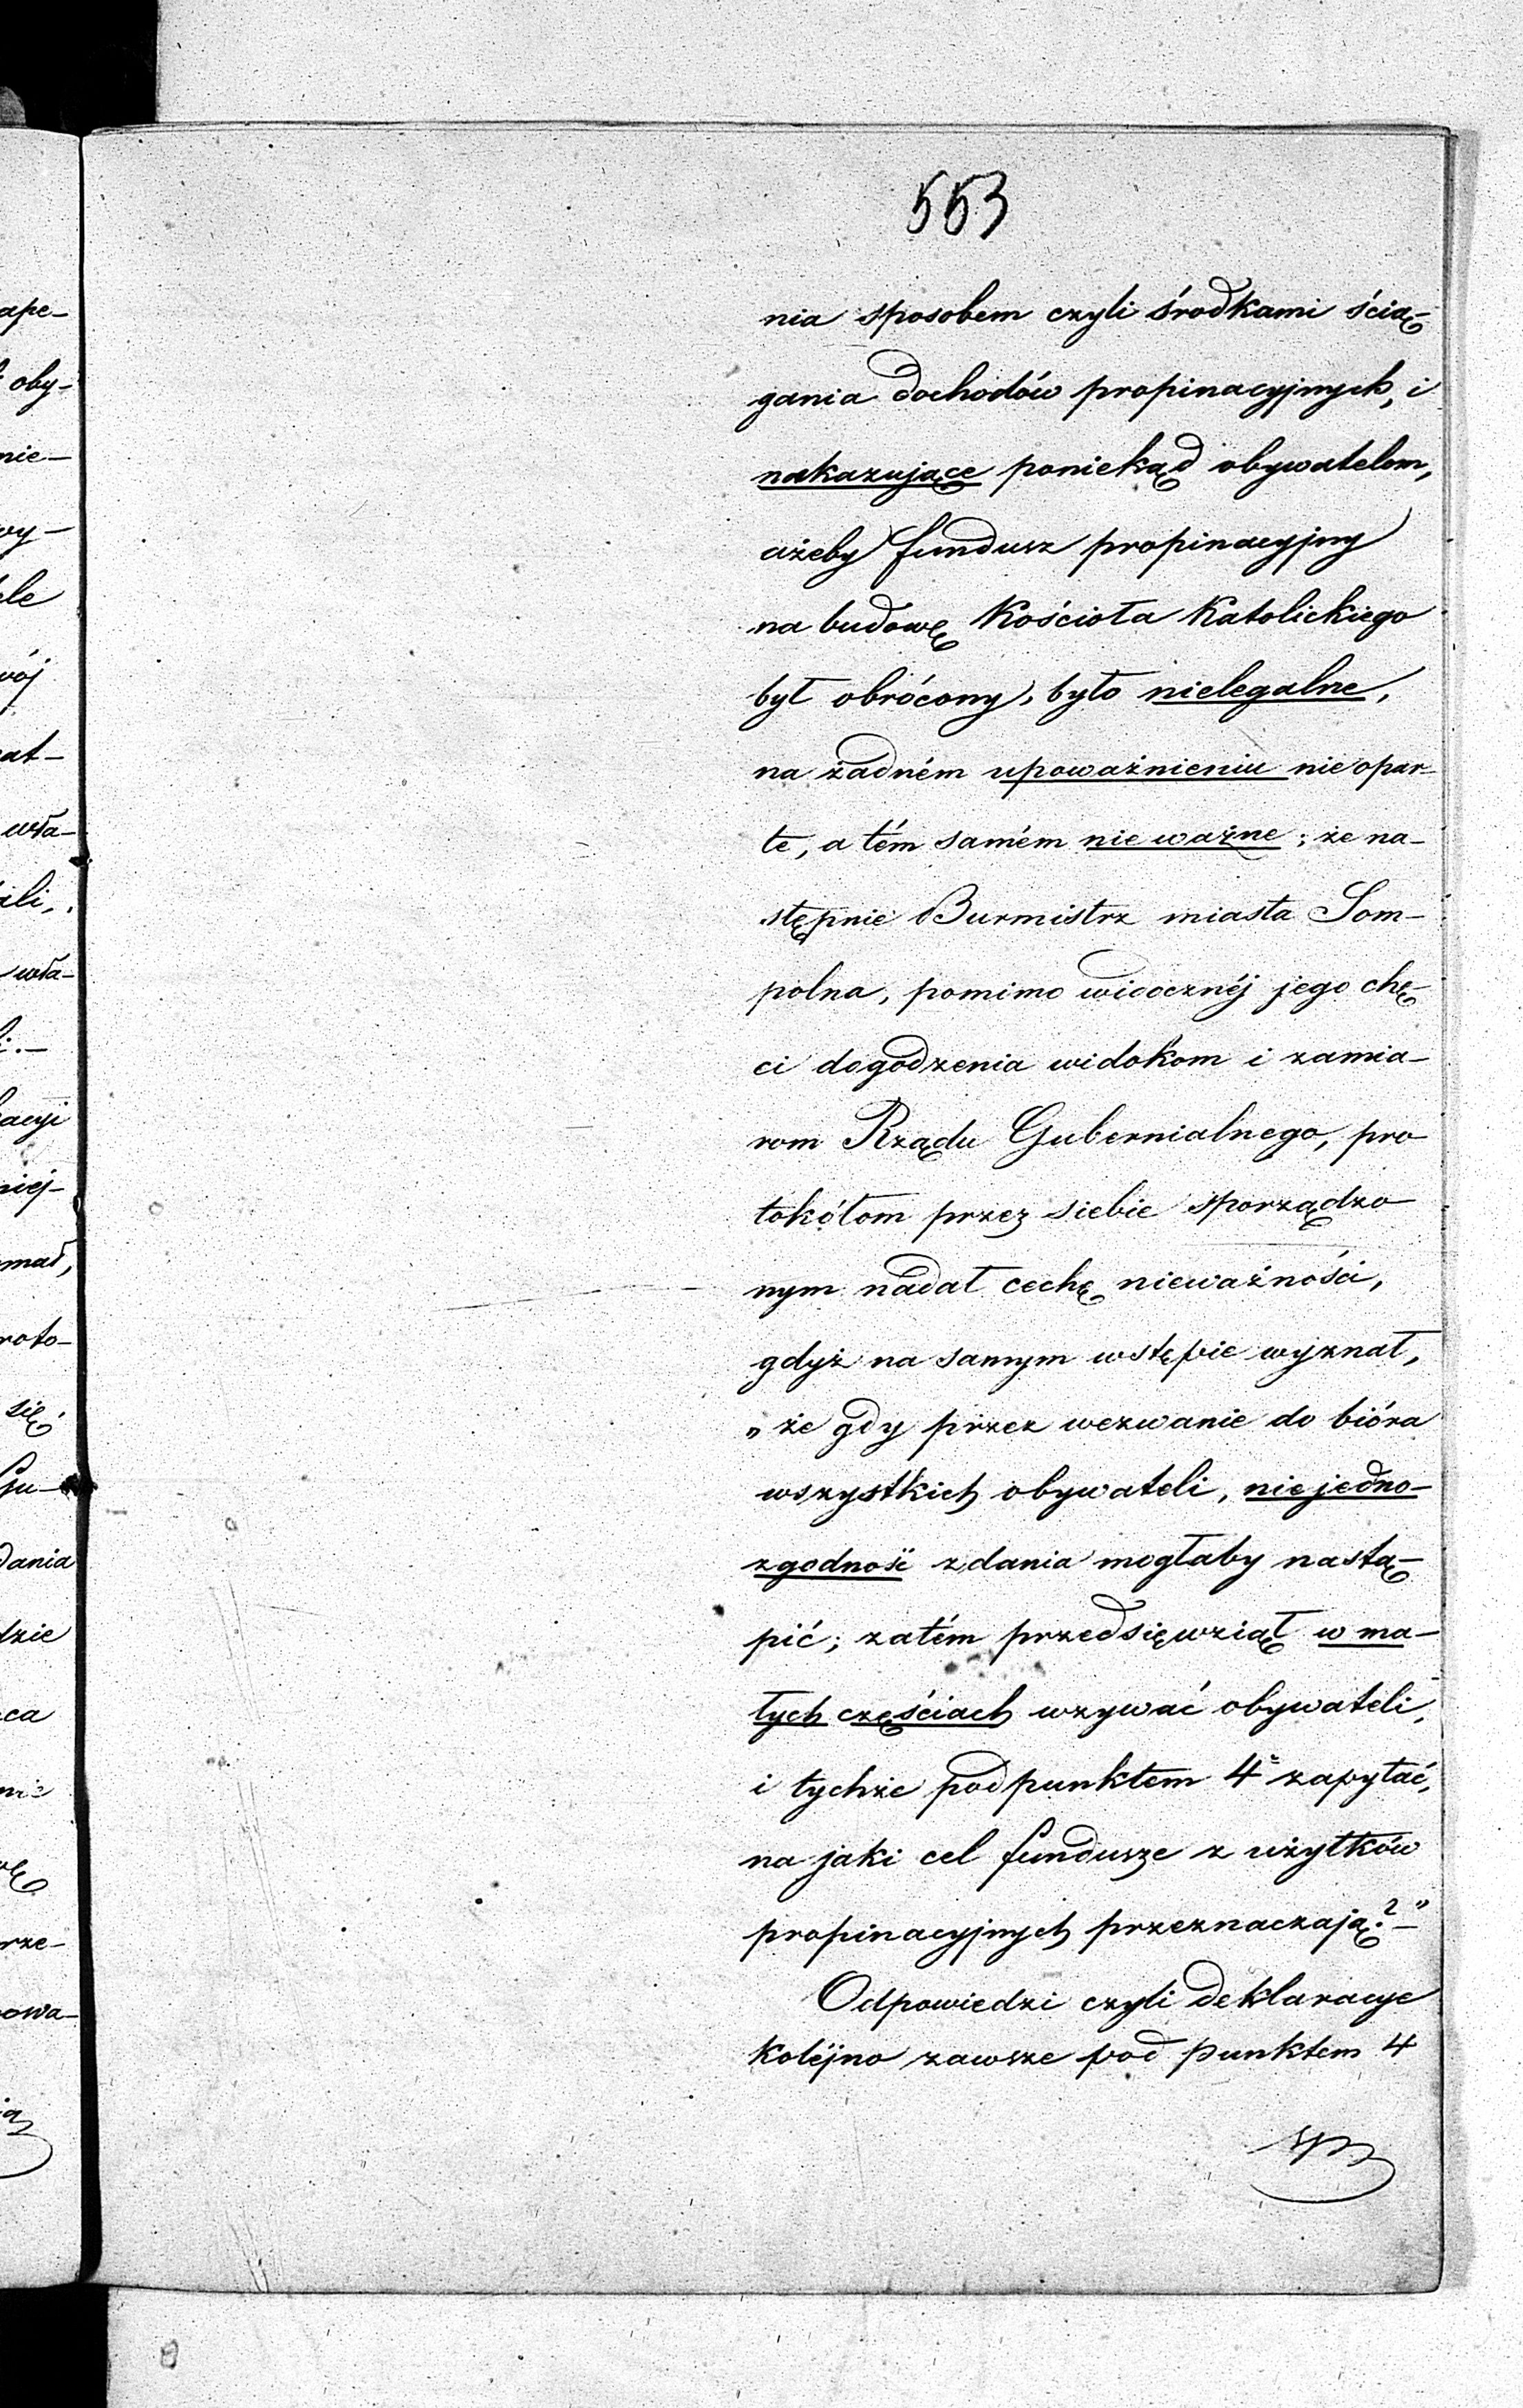 553
nia sposobem czyli środkami ścią-
gania dochodów propinacyjnych, i
nakazujące poniekąd obywatelom,
ażeby fundusz propinacyjny
na budowę Kościoła Katolickiego
był obrócony, było nielegalne,
na żadném upoważnieniu nie opar-
te, a tém samém nie ważne; że na-
stępnie Burmistrz miasta Som-
polna, pomimo widocznéj jego chę-
ci dogodzenia widokom i zamia-
rom Rządu Gubernialnego, pro
tokółom przez siebie sporządzo
nym nadał cechę nieważności,
gdyż na samym wstępie wyznał,
„że gdy przez wezwanie do bióra
wszystkich obywateli, nie jedno-
zgodność zdania mogłaby nastą-
pić; zatém przedsięwziął w ma-
łych częściach wzywać obywateli,
i tychże pod punktem 4 zapytać,
na jaki cel fundusze z użytków
propinacyjnych przeznaczają?—"
Odpowiedzi czyli deklaracye
koléjno zawsze pod punktem 4
ape-
oby-
nie-
wy-
ele
wój
at-
wła-
ali,
wła-
acyi
niej-
mał,
roto-
się
Gu-
dania
dzie
ca
rze-
owa-